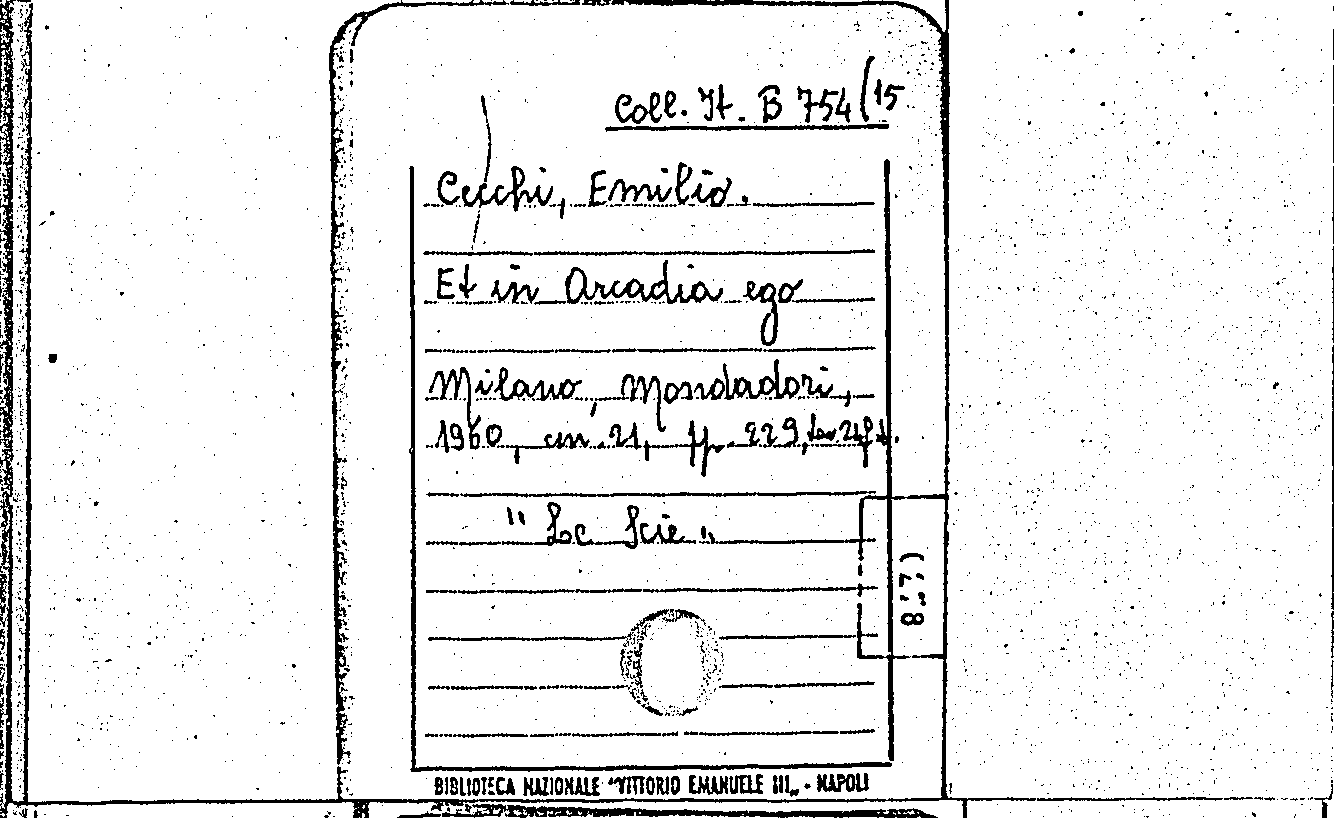 Coll. It. B 754(15
Cecchi, Emilio.
Et in Arcadia ego
Milano, Mondadori,
1960, cm. 21, pp. 229,
"Le Scie"
BIBLIOTECA NAZIONALE "VITTORIO EMANUELE III„ - NAPOLI